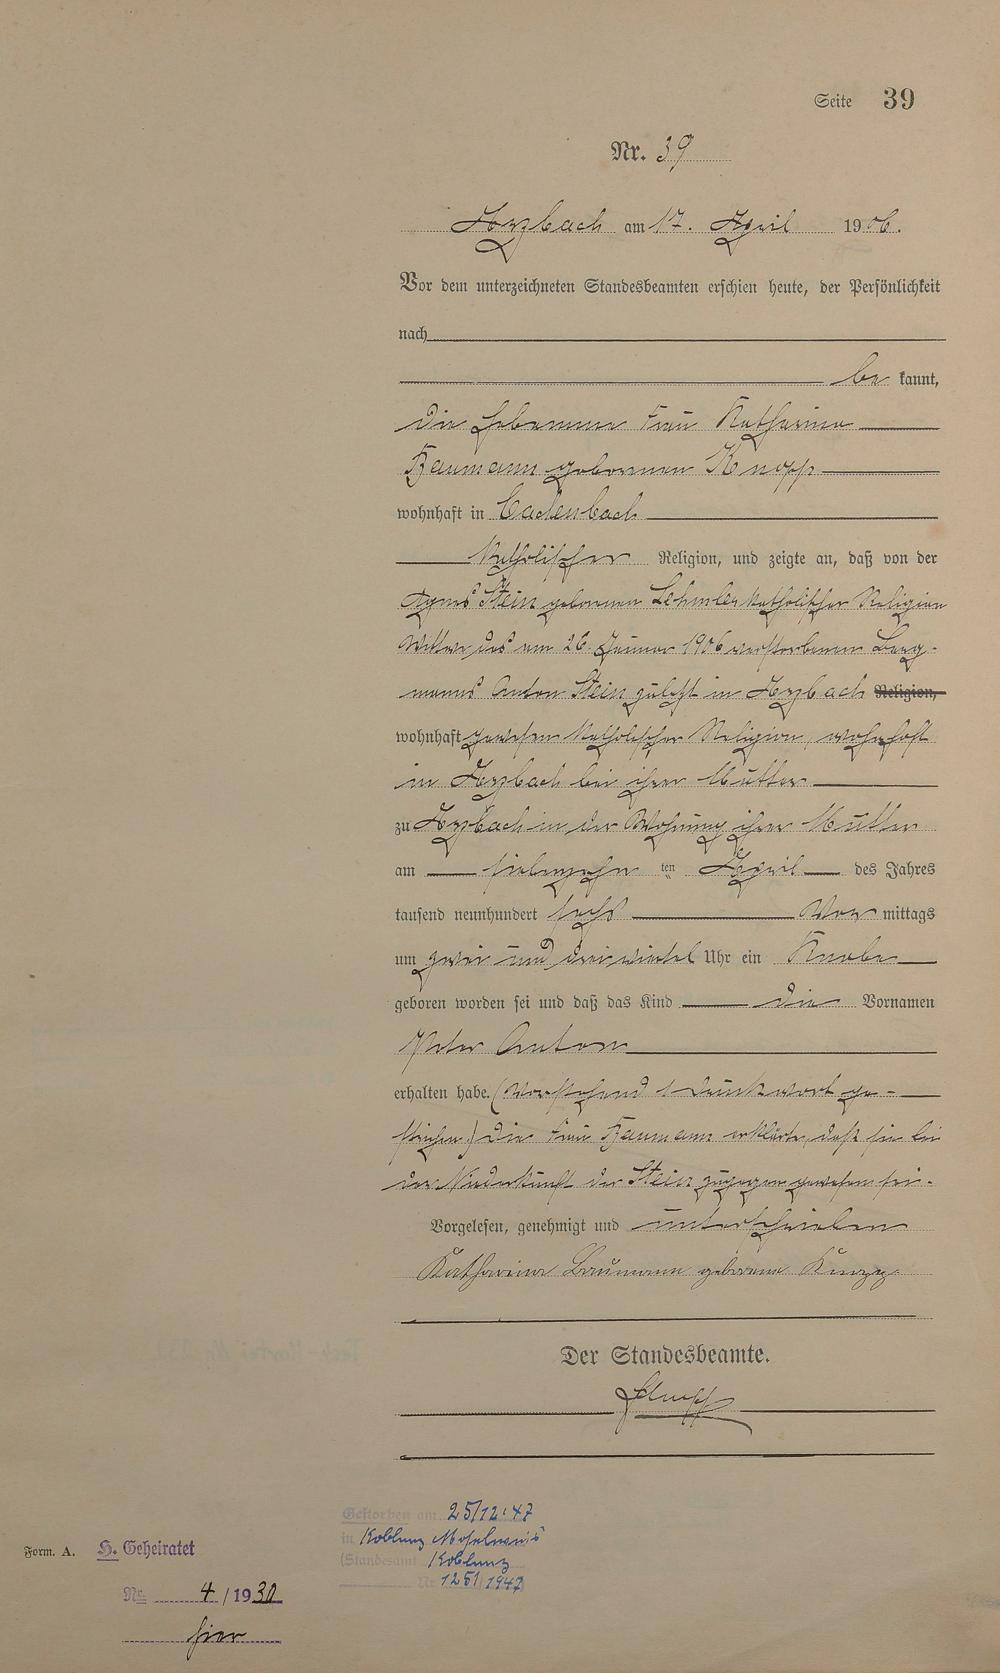 Seite 39
Nr. 39
Arzbach am 17. April 1906.
Vor dem unterzeichneten Standesbeamten erschien heute, der Persönlichkeit
nach
be kannt,
die Hebamme Frau Katharina
Baumann geborenen Knopp
wohnhaft in Cadenbach
katholischer Religion, und zeigte an, daß von der
Agnes Stein geborenen Lehmler katholischer Religion
Witwe des am 26. Januar 1906 verstorbenen Berg-
manns Anton Stein zuletzt in Arzbach Religion,
wohnhaft gewesen katholischer Religion, wohnhaft
in Arzbach bei ihrer Mutter
zu Arzbach in der Wohnung ihrer Mutter
am siebenzehn ten April des Jahres
tausend neunhundert sechs Vor mittags
um zwei und dreiviertel Uhr ein Knabe
geboren worden sei und daß das Kind die Vornamen
Peter Anton
erhalten habe. (Vorstehend 1 Druckwort ge-
strichen.) Die Frau Baumann erklärte, daß sie bei
der Niederkunft der Stein zugegen gewesen sei.
Vorgelesen, genehmigt und unterschrieben
Katharina Baumann geborene Knopp
Der Standesbeamte.
Gestorben am 25/12.47
in Koblenz Moselweiß
(Standesamt Koblenz
Nr. 1251/1947)
Form. A. H. Geheiratet
Nr. 4/1930
hier